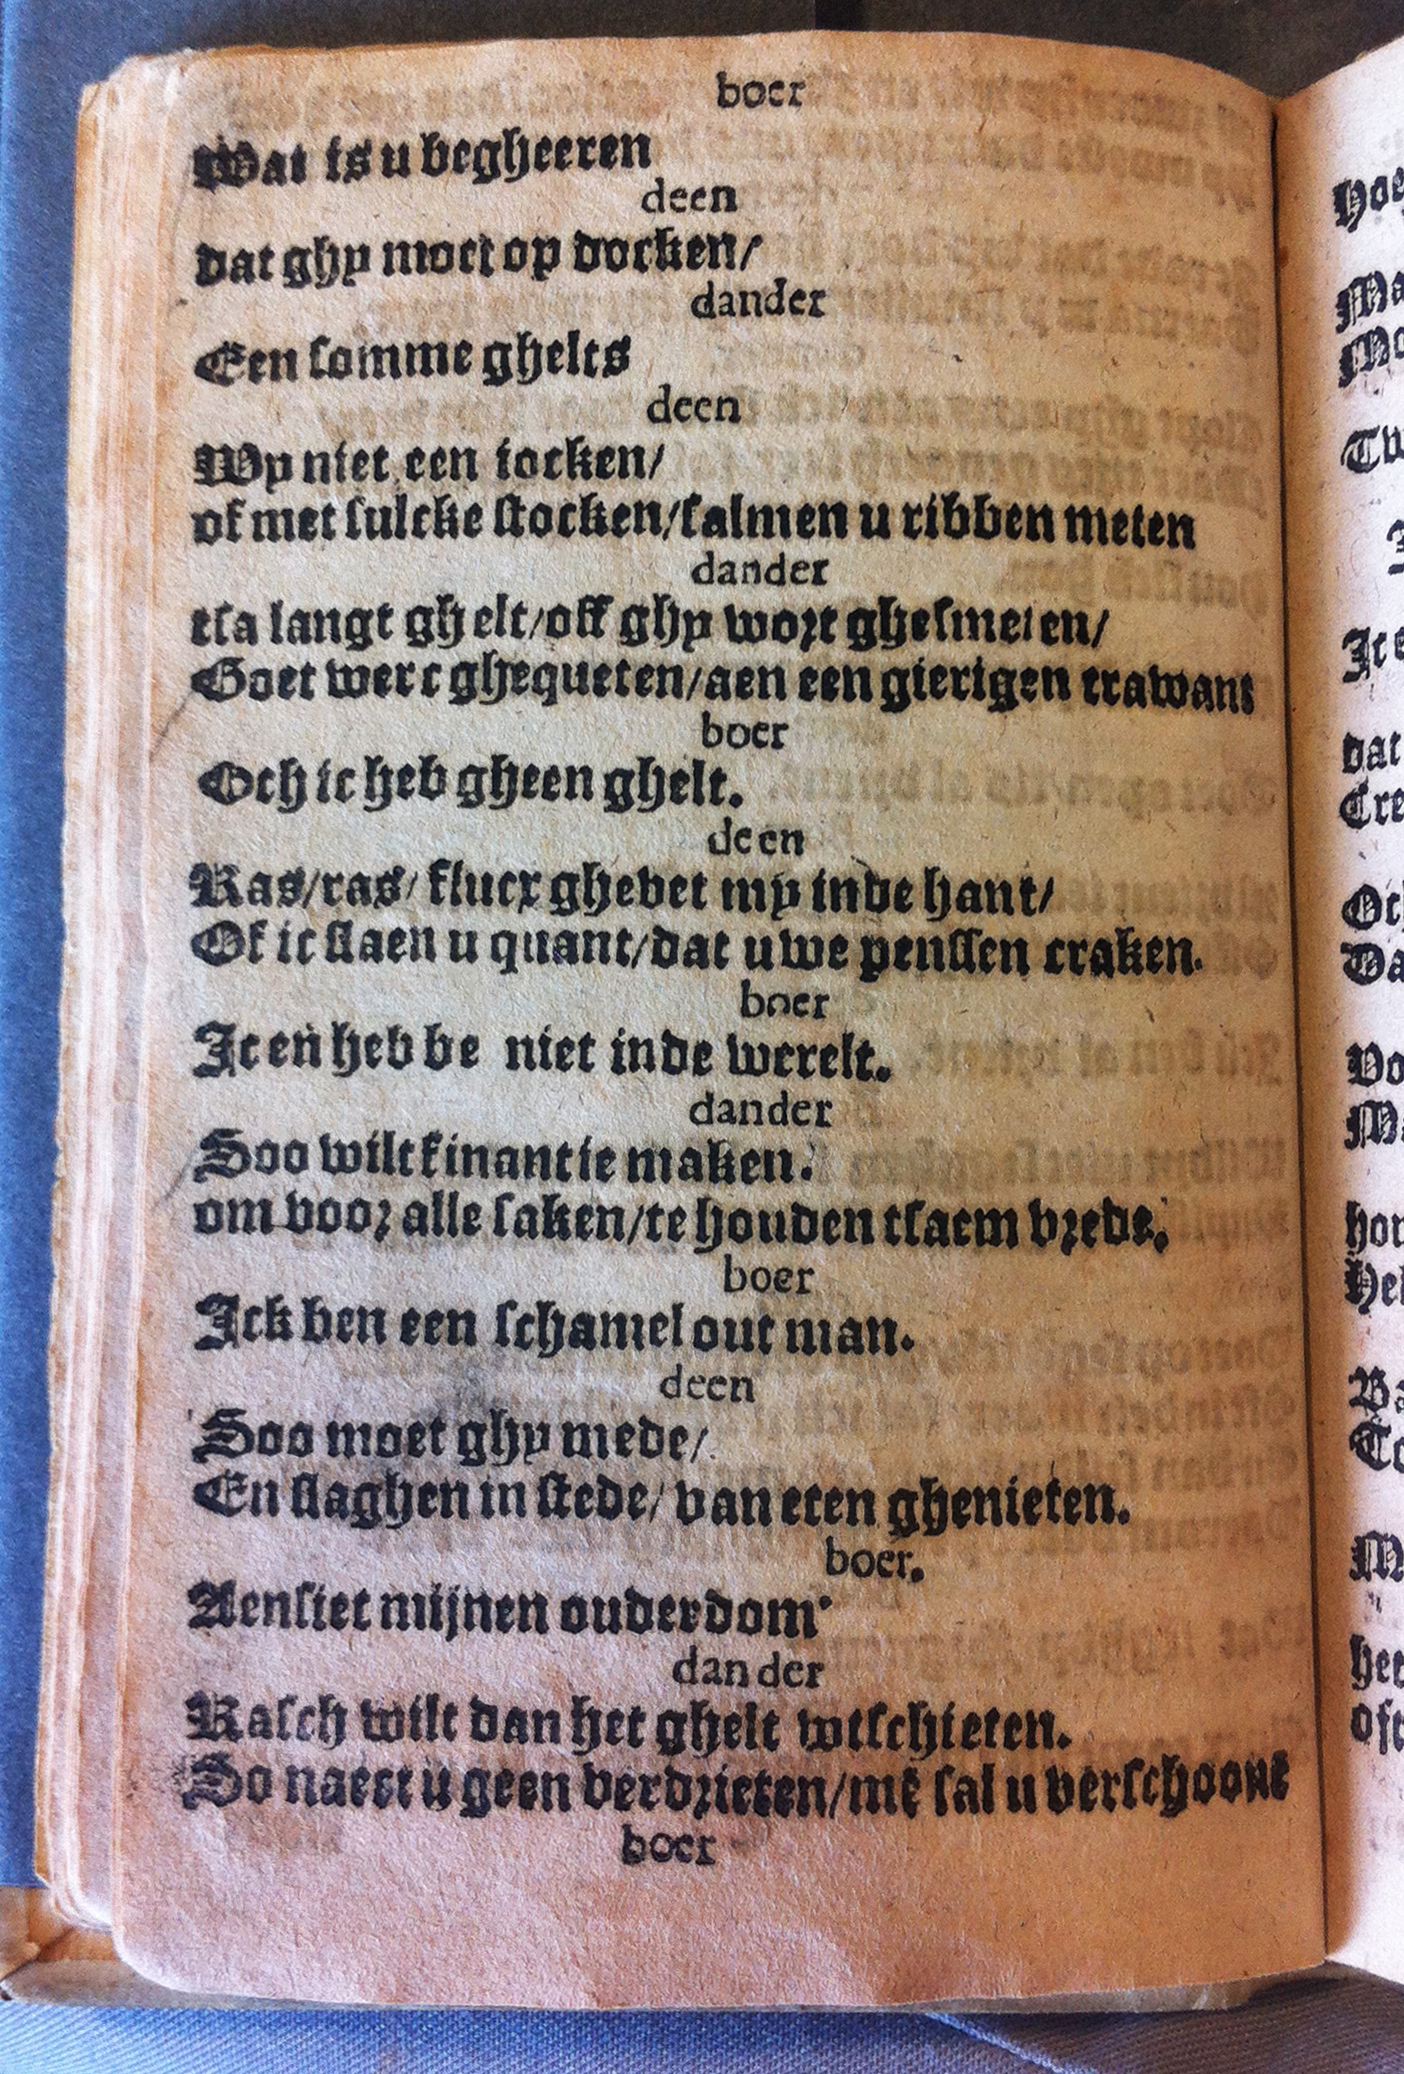 boer
Wat is u begheeren
deen
dat ghy moet op docken/
dander
Een somme ghelts
deen
Wy niet een iocken/
of met sulcke stocken/salmen u ribben meten
dander
tsa langt ghelt/off ghy wort ghesmeten/
Goet werc ghequeten/aen een gierigen trawant
boer
Och ic heb gheen ghelt.
deen
Ras/ras/ flucx ghevet my inde hant/
Of ic slaen u quant/dat uwe penssen craken.
boer
Ic en hebbe niet inde werelt.
dander
Soo wilt finantie maken.
om voor alle saken/te houden tsaem vrede.
boer
Ick ben een schamel out man.
deen
Soo moet ghy mede/
En slaghen in stede/ van eten ghenieten.
boer.
Aensiet mijnen ouderdom
dander
Rasch wilt dan het ghelt wtschieten.
So naect u geen verdrieten/mē sal u verschoonē
boer
Hoe
Ma
Mo
Tw
Ic
dat
Cre
Och
Da
Vo
Ma
hou
Hel
Ba
To
M
het
oft